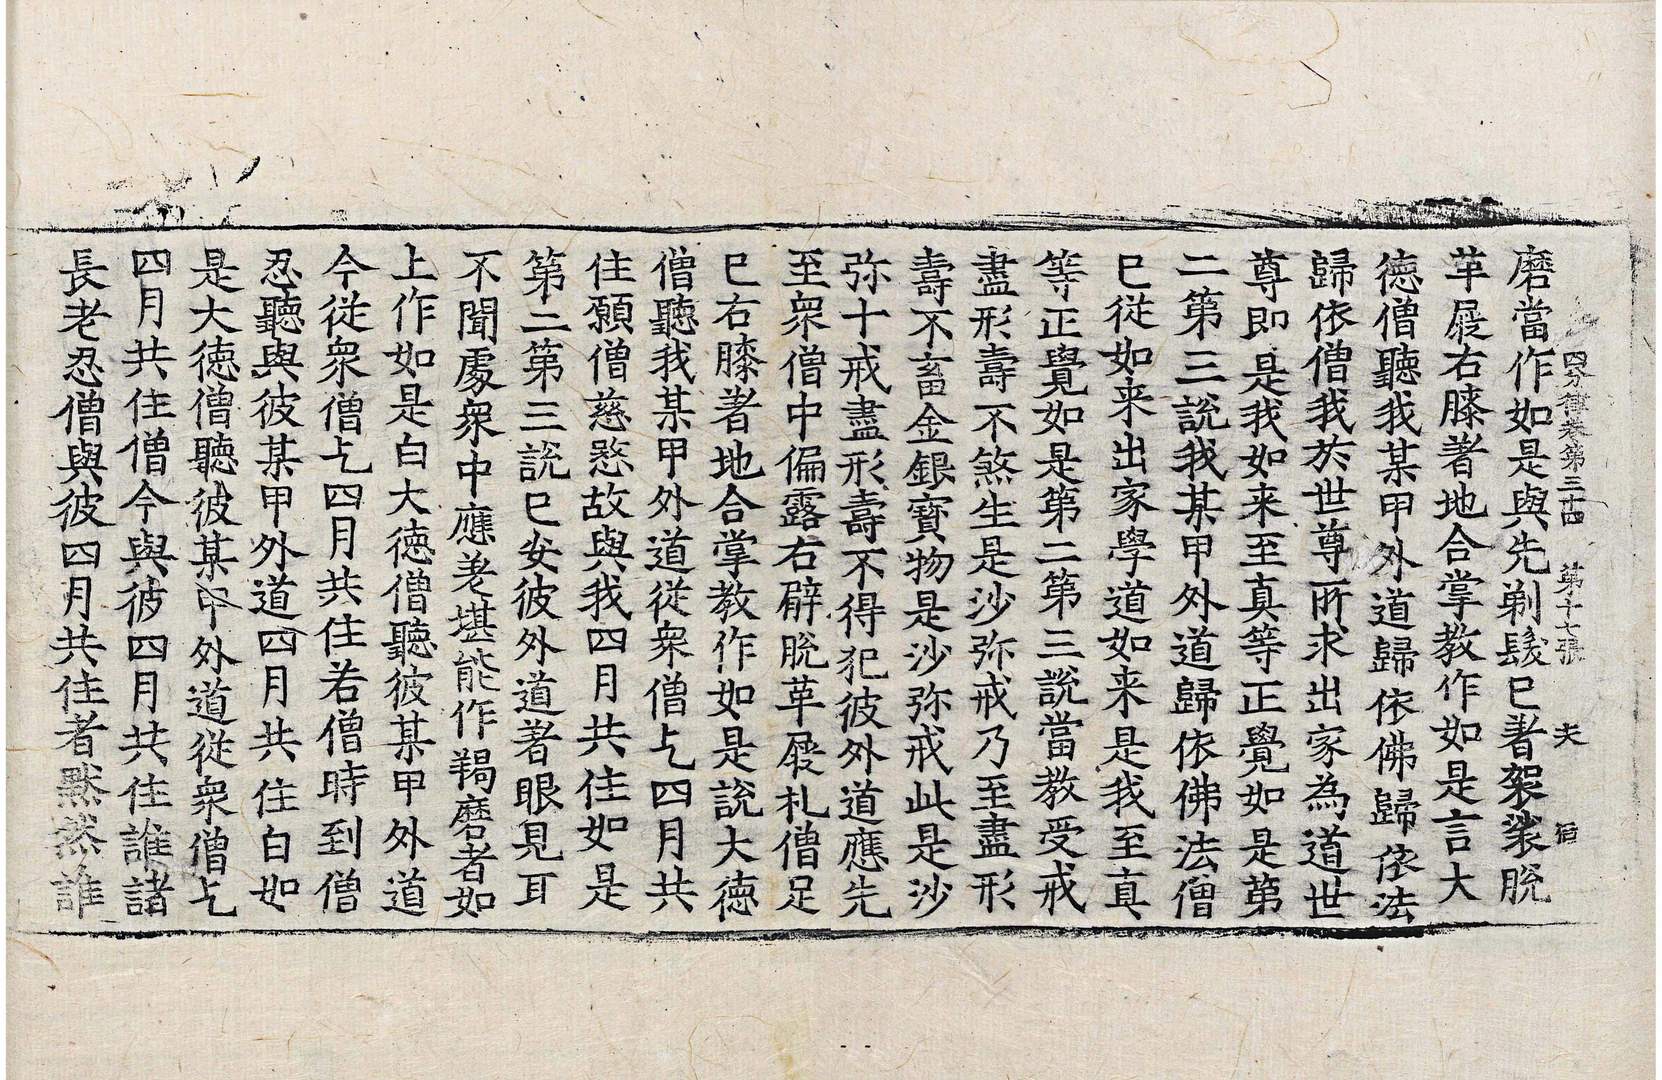 四分律卷第三十四 第十七張 夫 宿
磨當作如是與先剃髮已著袈裟脫
革屣右膝著地合掌教作如是言大
徳僧聽我某甲外道歸依佛歸依法
歸依僧我於世尊所求出家為道世
尊即是我如来至真等正覺如是第
二第三說我某甲外道歸依佛法僧
已從如来出家學道如来是我至真
等正覺如是第二第三說當教受戒
盡形壽不煞生是沙弥戒乃至盡形
壽不畜金銀寶物是沙弥戒此是沙
弥十戒盡形壽不得犯彼外道應先
至衆僧中偏露右臂脫革屣礼僧足
已右膝著地合掌教作如是說大徳
僧聽我某甲外道從衆僧乞四月共
住願僧慈愍故與我四月共住如是
第二第三說已安彼外道著眼見耳
不聞處衆中應差堪能作羯磨者如
上作如是白大徳僧聽彼某甲外道
今從衆僧乞四月共住若僧時到僧
忍聽與彼某甲外道四月共住白如
是大徳僧聽彼某甲外道從衆僧乞
四月共住僧今與彼四月共住誰諸
長老忍僧與彼四月共住者默然誰